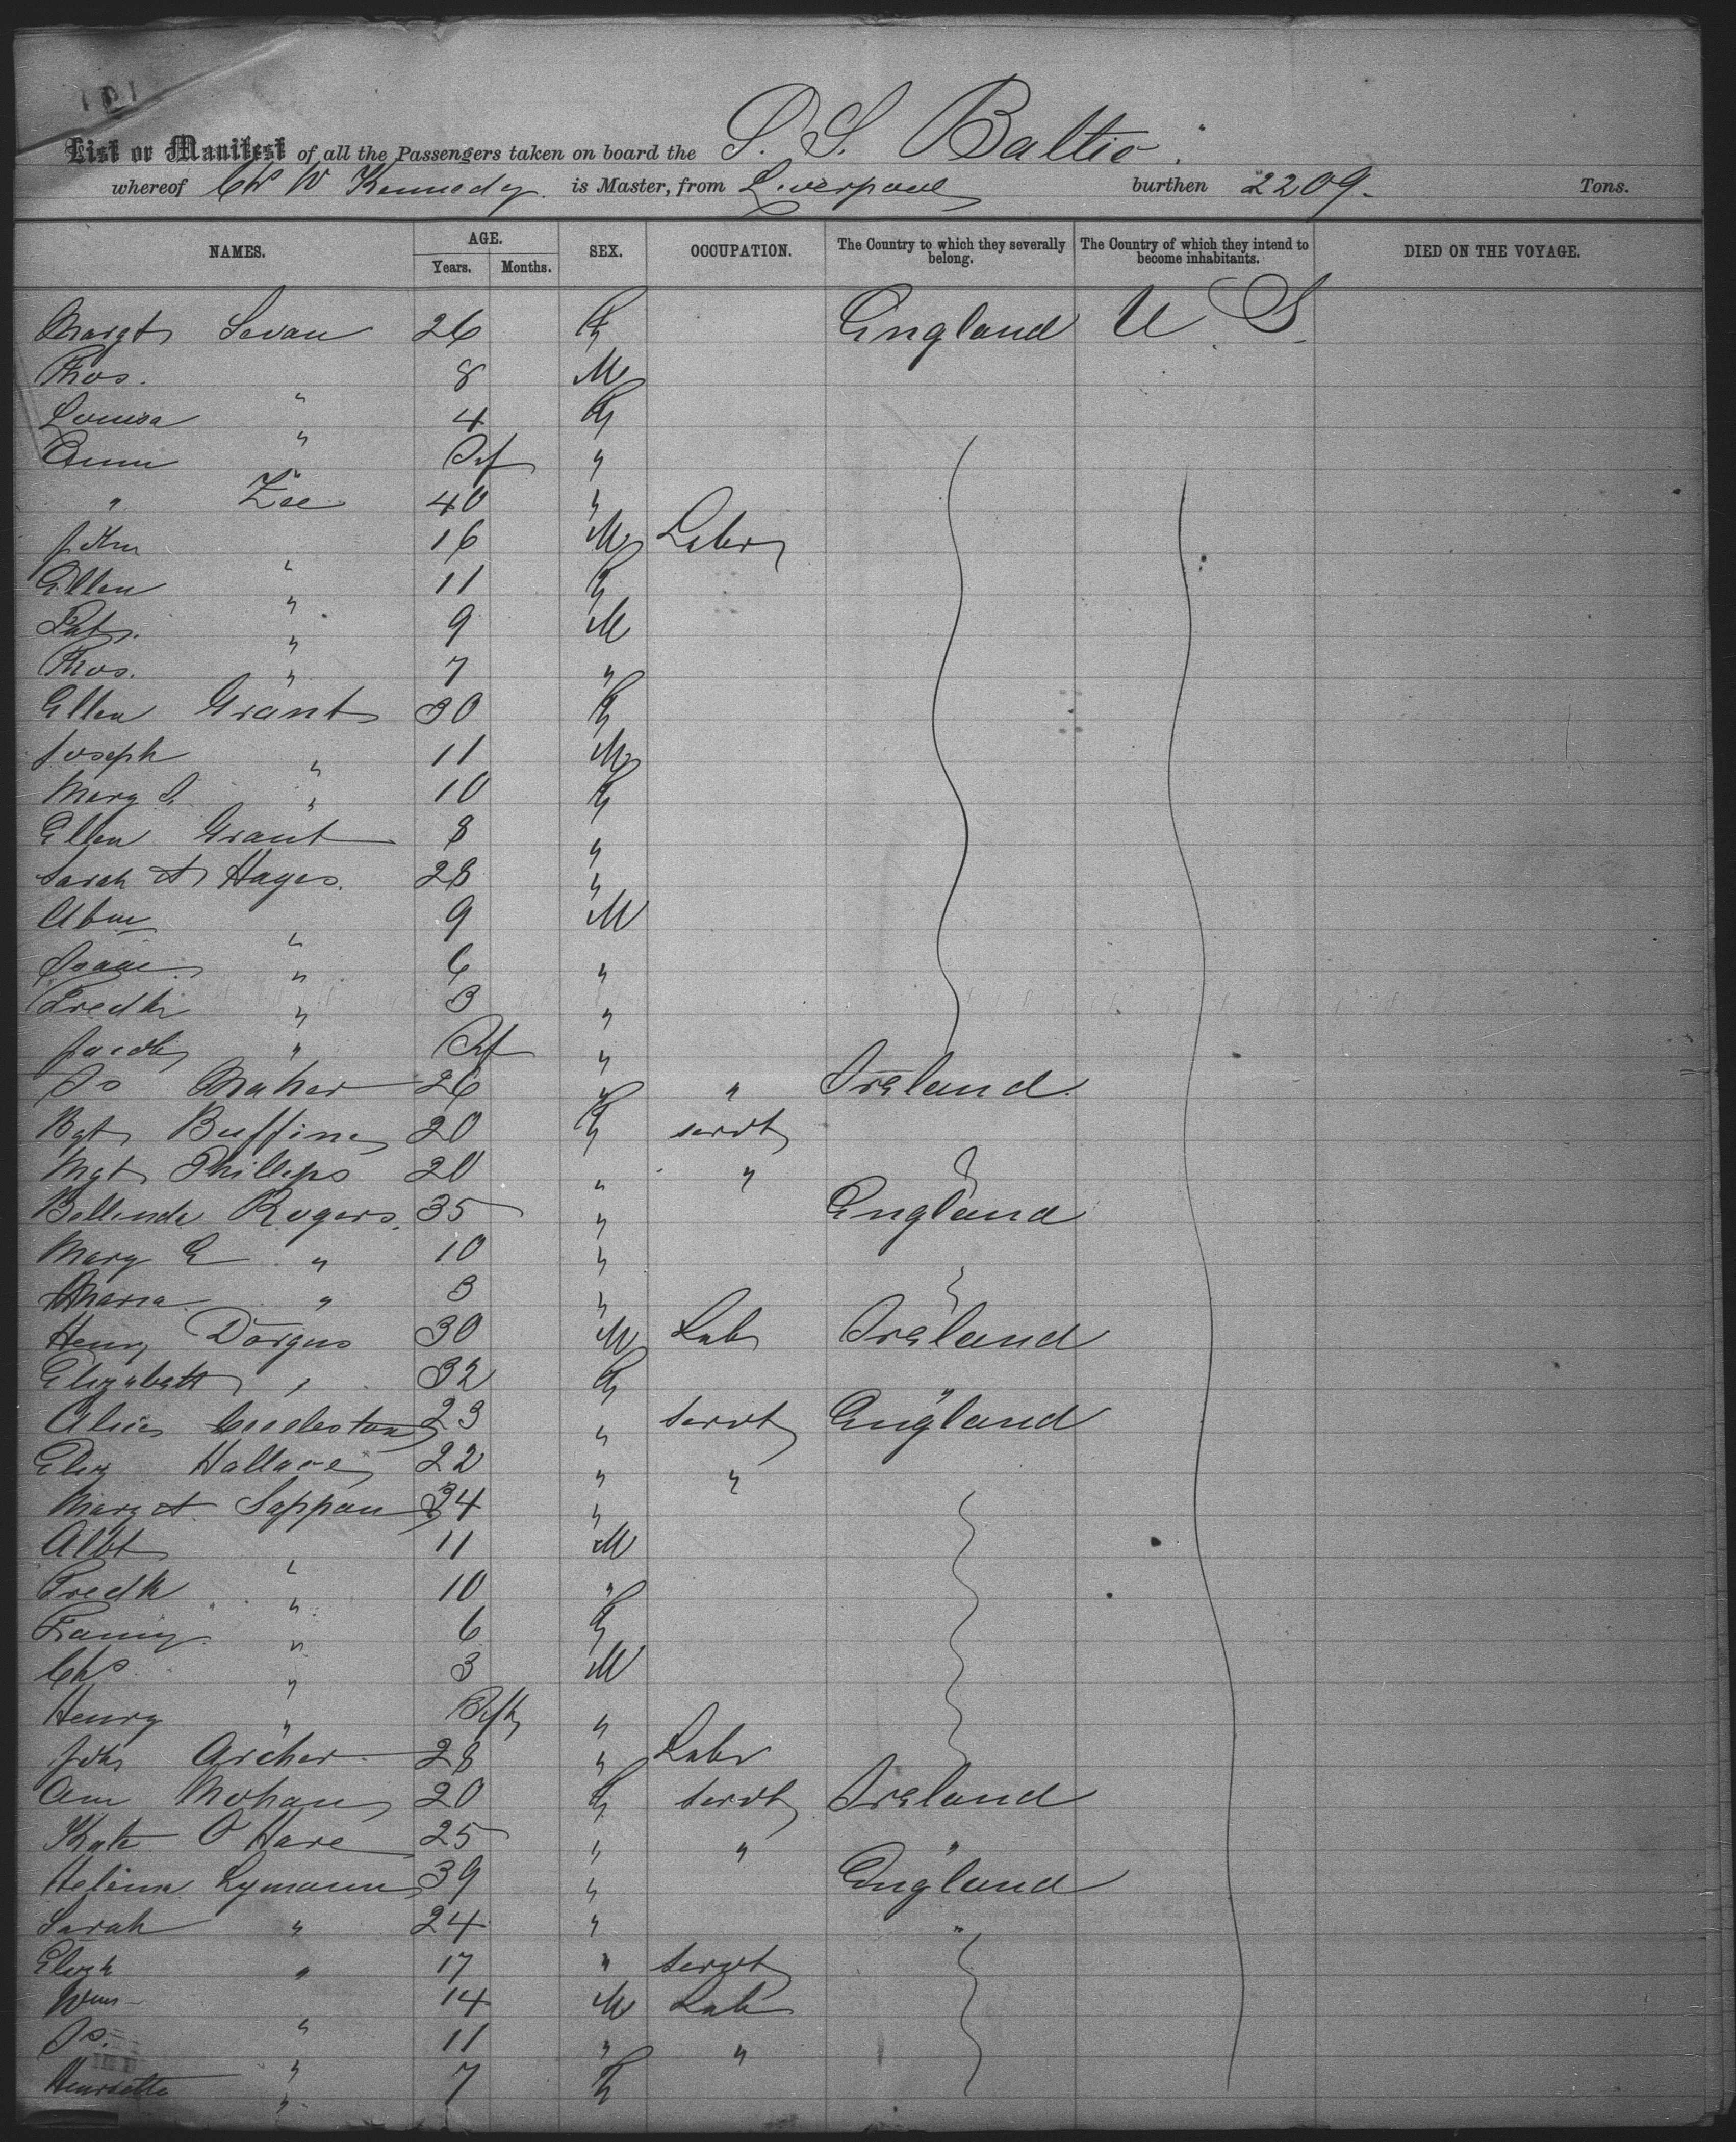 List or Manifest of all the Passengers taken on board the S. S. Baltic
whereof Chs W Kennedy is Master, from Liverpool burthen 2209. Tons.
NAMES. AGE. Years. Months. SEX. OCCUPATION. The Country to which they severally belong. The Country of which they intend to become inhabitants. DIED ON THE VOYAGE.
Margt 26 F England U S
Thos. " 8 M
Louisa " 4 F
Ann " Inf "
" Lee 40 "
John " 16 M Labr
Ellen " 11 F
Patk. " 9 M
Thos. " 7 "
Ellen Grant 30 F
Joseph " 11 M
Mary " 10 F
Ellen Grant 8 "
Sarah A Hayes. 28 "
Abm " 9 M
Isaac " 6 "
Fredk " 3 "
Jacob " Inf "
Js Maher 26 " " Ireland
Bgt 20 F servt
Mgt Phillips 20 " "
Bellinda Rogers. 35 " England
Mary E " 10 "
Maria " 3 "
Henry Dargus 30 M Lab Ireland
Elizabeth " 32 F "
Alice 23 " servt England
Eliz Hallace 22 " "
Margt Sappan 34 "
Albt " 11 M
Fredk " 10 "
Fanny " 6 F
Chs " 3 M
Henry " Inft "
Jno Archer 28 " Labr
Ann Mohan 20 F servt Ireland
Kate O Hare 25 " " "
Helena Lymann 39 " England
Sarah " 24 " "
Elizh " 17 " servt
Wm " 14 M Lab
Js. " 11 " "
Henrietta " 7 F